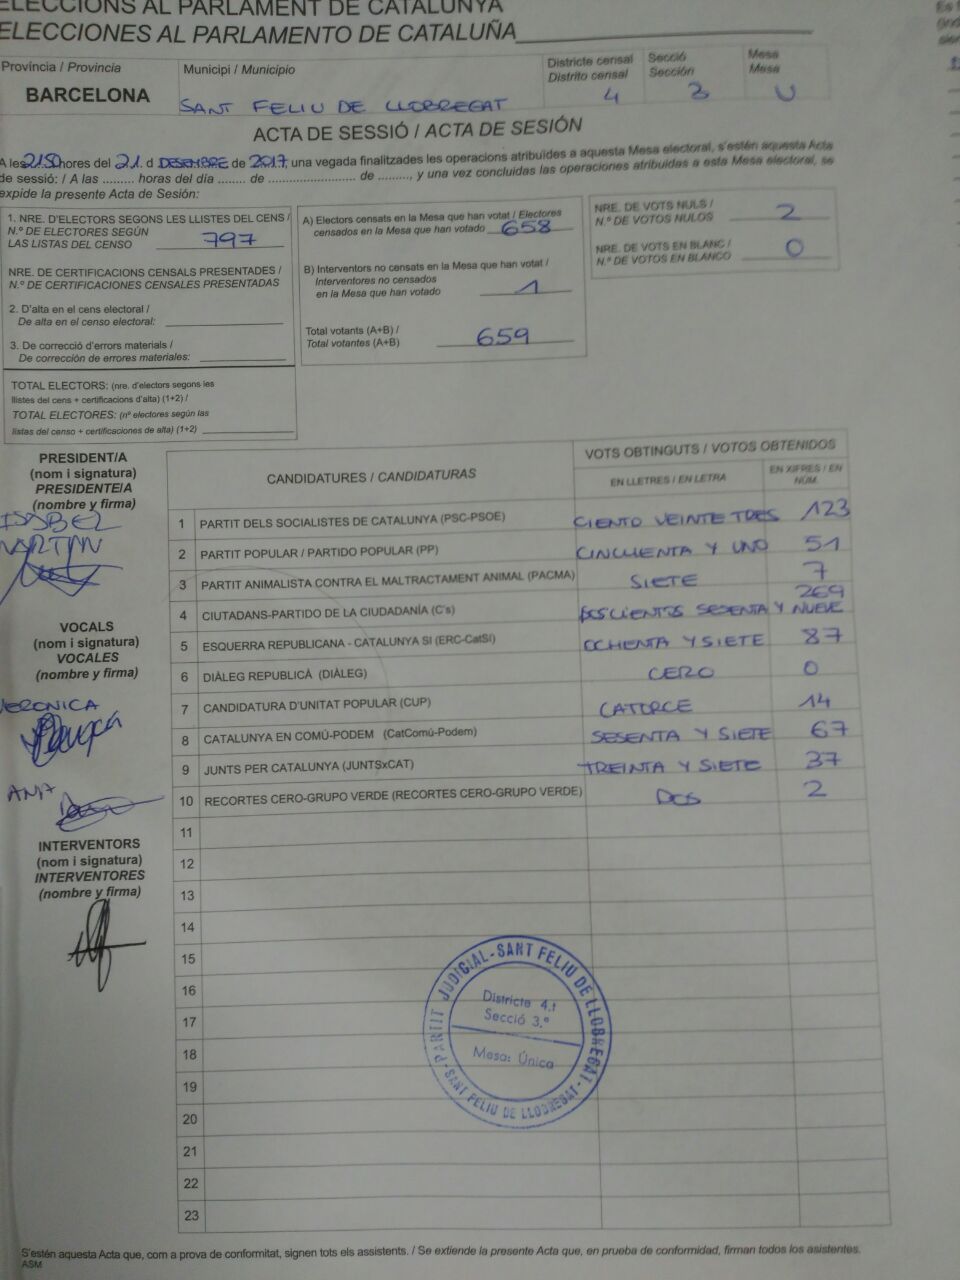 ELECCIONS AL PARLAMENT DE CATALUNYA
ELECCIONES AL PARLAMENTO DE CATALUÑA
Província / Provincia
BARCELONA
Municipi / Municipio
SANT FELIU DE LLOBREGAT
Districte censal
Distrito censal
4
Secció
Sección
3
Mesa
Mesa
U
ACTA DE SESSIÓ / ACTA DE SESIÓN
A les 2150 hores del 21. d DESEMBRE de 2017, una vegada finalitzades les operacions atribuïdes a aquesta Mesa electoral, s'estén aquesta Acta
de sessió: / A las ......... horas del día ........ de ......................... de .........., y una vez concluidas las operaciones atribuidas a esta Mesa electoral, se
expide la presente Acta de Sesión:
1. NRE. D'ELECTORS SEGONS LES LLISTES DEL CENS /
N.º DE ELECTORES SEGÚN
LAS LISTAS DEL CENSO 797
NRE. DE CERTIFICACIONS CENSALS PRESENTADES /
N.º DE CERTIFICACIONES CENSALES PRESENTADAS
2. D'alta en el cens electoral /
De alta en el censo electoral:
3. De correcció d'errors materials /
De corrección de errores materiales:
TOTAL ELECTORS: (nre. d'electors segons les
llistes del cens + certificacions d'alta) (1+2) /
TOTAL ELECTORES: (nº electores según las
listas del censo + certificaciones de alta) (1+2)
A) Electors censats en la Mesa que han votat / Electores
censados en la Mesa que han votado 658
B) Interventors no censats en la Mesa que han votat /
Interventores no censados
en la Mesa que han votado 1
Total votants (A+B) /
Total votantes (A+B) 659
NRE. DE VOTS NULS /
N.º DE VOTOS NULOS 2
NRE. DE VOTS EN BLANC /
N.º DE VOTOS EN BLANCO 0
PRESIDENT/A
(nom i signatura)
PRESIDENTE/A
(nombre y firma)
ISABEL
MARTIN
VOCALS
(nom i signatura)
VOCALES
(nombre y firma)
VERONICA
ANA
INTERVENTORS
(nom i signatura)
INTERVENTORES
(nombre y firma)
CANDIDATURES / CANDIDATURAS
VOTS OBTINGUTS / VOTOS OBTENIDOS
EN LLETRES / EN LETRA
EN XIFRES / EN NÚM.
1 PARTIT DELS SOCIALISTES DE CATALUNYA (PSC-PSOE) CIENTO VEINTE TRES 123
2 PARTIT POPULAR / PARTIDO POPULAR (PP) CINCUENTA Y UNO 51
3 PARTIT ANIMALISTA CONTRA EL MALTRACTAMENT ANIMAL (PACMA) SIETE 7
4 CIUTADANS-PARTIDO DE LA CIUDADANÍA (C's) DOSCIENTOS SESENTA Y NUEVE 269
5 ESQUERRA REPUBLICANA - CATALUNYA SI (ERC-CatSI) OCHENTA Y SIETE 87
6 DIÀLEG REPUBLICÀ (DIÀLEG) CERO 0
7 CANDIDATURA D'UNITAT POPULAR (CUP) CATORCE 14
8 CATALUNYA EN COMÚ-PODEM (CatComú-Podem) SESENTA Y SIETE 67
9 JUNTS PER CATALUNYA (JUNTSxCAT) TREINTA Y SIETE 37
10 RECORTES CERO-GRUPO VERDE (RECORTES CERO-GRUPO VERDE) DOS 2
11
12
13
14
15
16
17
18
19
20
21
22
23
PARTIT JUDICIAL-SANT FELIU DE LLOBREGAT
Districte 4.t
Secció 3.ª
Mesa: Única
SANT FELIU DE LLOBREGAT
S'estén aquesta Acta que, com a prova de conformitat, signen tots els assistents. / Se extiende la presente Acta que, en prueba de conformidad, firman todos los asistentes.
ASM